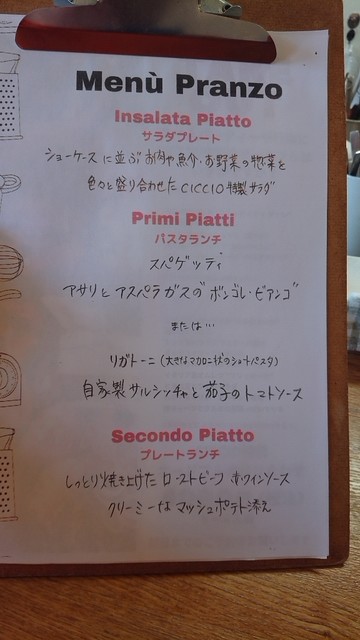 Menù Pranzo
Insalata Piatto
サラダプレート
ショーケースに並ぶお肉や魚介・お野菜の惣菜を
色々と盛り合わせた CICCIO 特製サラダ
Primi Piatti
パスタランチ
スパゲッティ
アサリとアスパラガスの"ボンゴレ・ビアンコ"
または…
リガトーニ(大きなマカロニ状のショートパスタ)
自家製サルシッチャと茄子のトマトソース
Secondo Piatto
プレートランチ
しっとり焼き上げたローストビーフ 赤ワインソース
クリーミーなマッシュポテト添え